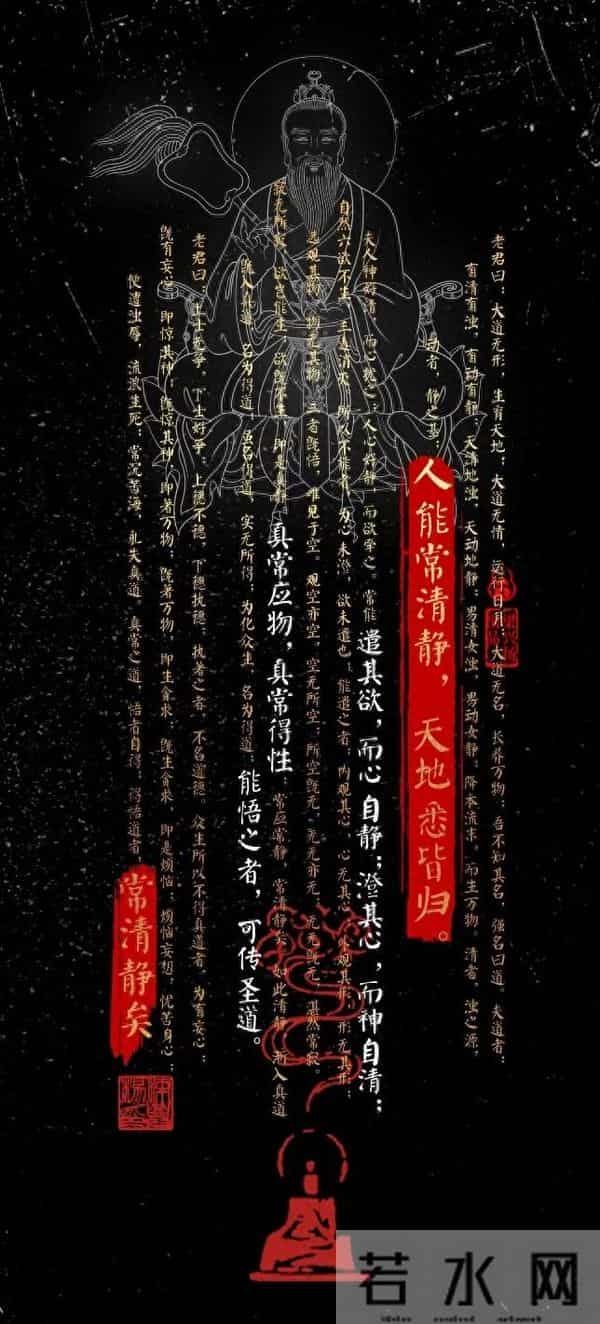 老君曰：大道无形，生育天地；大道无情，运行日月；大道无名，长养万物；吾不知其名，强名曰道。夫道者：
有清有浊，有动有静；天清地浊，天动地静；男清女浊，男动女静。降本流末，而生万物。清者，浊之源；
动者，静之基；人能常清静，天地悉皆归。
夫人神好清，而心扰之；人心好静，而欲牵之。常能遣其欲，而心自静；澄其心，而神自清；
自然六欲不生，三毒消灭。所以不能者，为心未澄，欲未遣也；能遣之者，内观其心，心无其心；外观其形，形无其形；
远观其物，物无其物；三者既悟，唯见于空。观空亦空，空无所空；所空既无，无无亦无；无无既无，湛然常寂。
寂无所寂，欲岂能生；欲既不生，即是真静。真常应物，真常得性；常应常静，常清静矣。如此清静，渐入真道
既入真道，名为得道；虽名得道，实无所得；为化众生，名为得道；能悟之者，可传圣道。
老君曰：上士无争，下士好争；上德不德，下德执德；执著之者，不名道德。众生所以不得真道者，为有妄心；
既有妄心，即惊其神；既惊其神，即著万物；既著万物，即生贪求；既生贪求，即是烦恼；烦恼妄想，忧苦身心；
便遭浊辱，流浪生死；常沉苦海，永失真道。真常之道，悟者自得；得悟道者，常清静矣
若水网